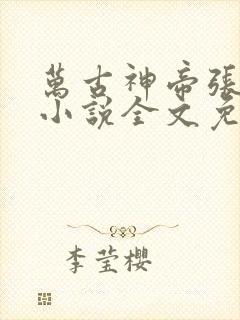 萬古神帝張
小說全文免
李莹櫻